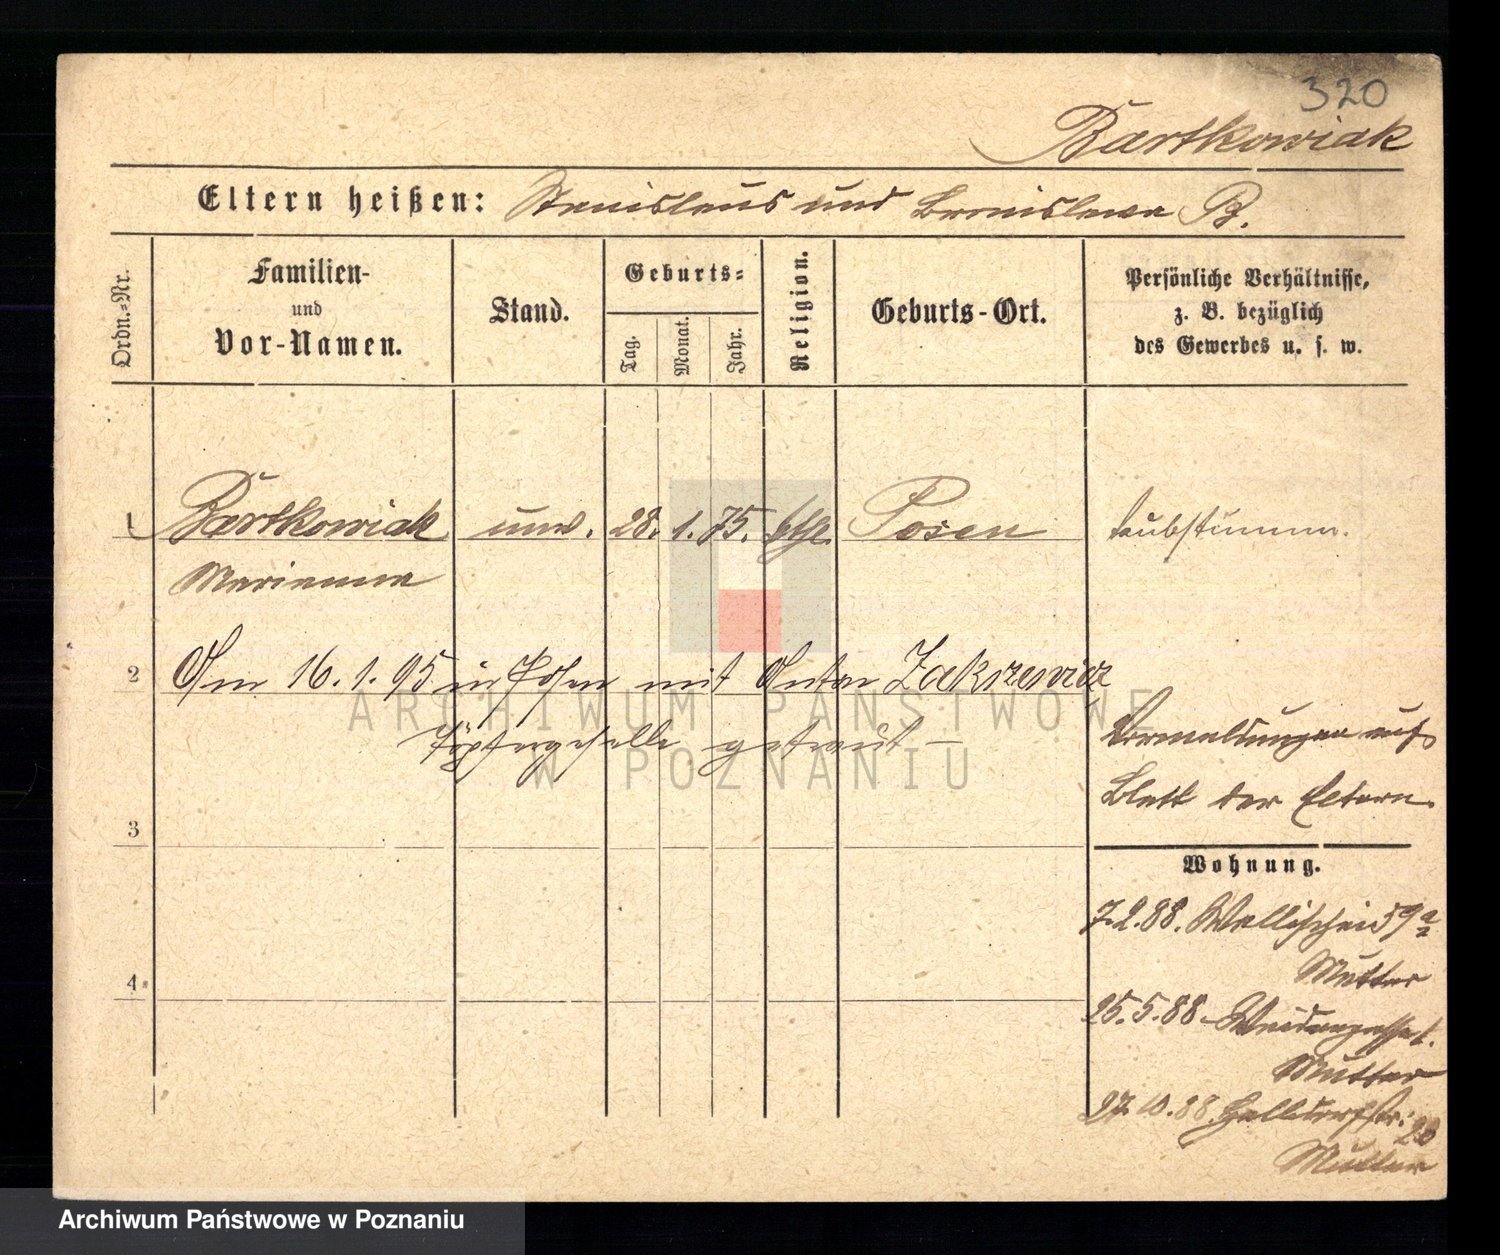 320
Bartkowiak
Eltern heißen: Stanislaus und Bronislawa B.
Ordn.-Nr.
Familien- und Vor-Namen.
Stand.
Geburts-
Tag.
Monat.
Jahr.
Religion.
Geburts-Ort.
Persönliche Verhältnisse,
z. B. bezüglich
des Gewerbes u. s. w.
1 Bartkowiak unv. 28. 1. 75. kth. Posen taubstumm.
Marianna
2 Am 16.1.95 in Posen mit Anton Zakrzewicz
Töpfergeselle getraut –
Vermeldungen auf
Blatt der Eltern.
3
Wohnung.
7.2.88. Wallischei 59a
Mutter
4.
25.5.88 Weidengasse 1.
Mutter
27.10.88. Halldorfstr. 20
Mutter
ARCHIWUM PAŃSTWOWE
W POZNANIU
Archiwum Państwowe w Poznaniu